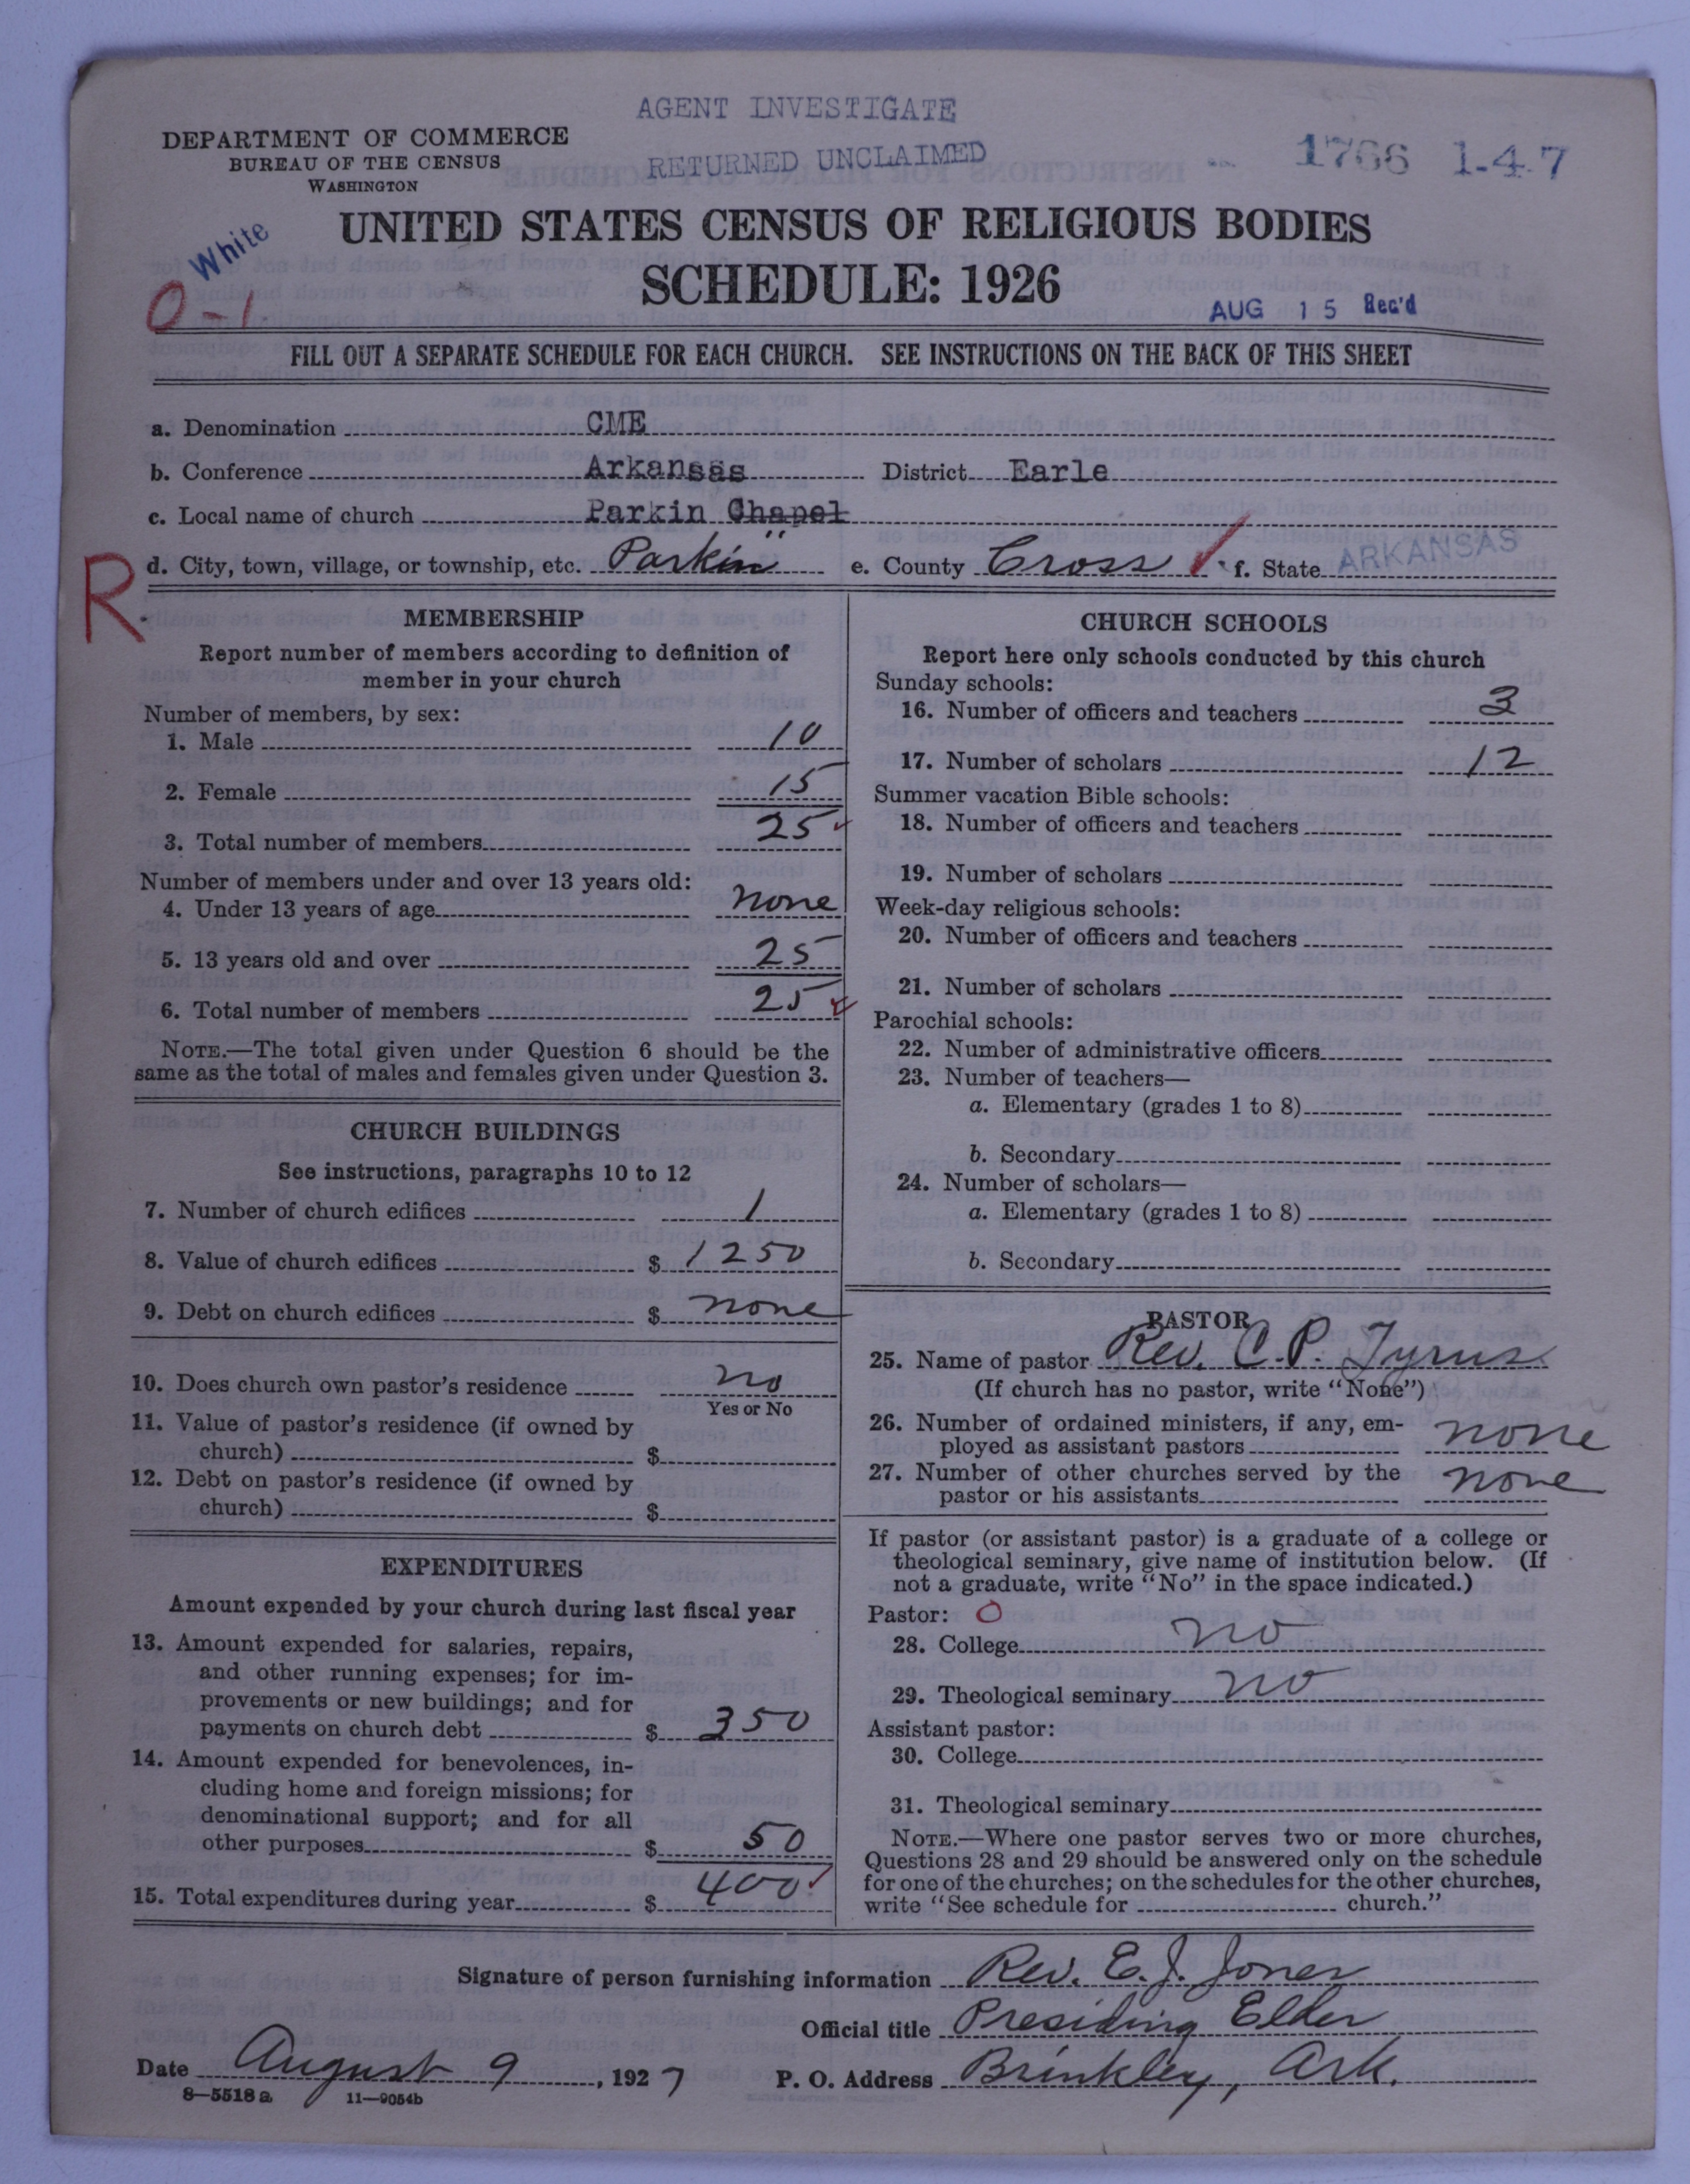 AGENT INVESTIGATE
DEPARTMENT OF COMMERCE
BUREAU OF THE CENSUS
WASHINGTON
RETURNED UNCLAIMED
1766 1-4-7
White
UNITED STATES CENSUS OF RELIGIOUS BODIES
SCHEDULE: 1926
0-1
AUG 15 Rec'd
FILL OUT A SEPARATE SCHEDULE FOR EACH CHURCH. SEE INSTRUCTIONS ON THE BACK OF THIS SHEET
a. Denomination CME
b. Conference Arkansas District Earle
c. Local name of church Parkin Chapel
R
d. City, town, village, or township, etc. Parkin e. County Cross f. State ARKANSAS
MEMBERSHIP
Report number of members according to definition of
member in your church
Number of members, by sex:
1. Male 10
2. Female 15
3. Total number of members 25
Number of members under and over 13 years old:
4. Under 13 years of age none
5. 13 years old and over 25
6. Total number of members 25
NOTE.—The total given under Question 6 should be the
same as the total of males and females given under Question 3.
CHURCH BUILDINGS
See instructions, paragraphs 10 to 12
7. Number of church edifices 1
8. Value of church edifices $ 1250
9. Debt on church edifices $ none
10. Does church own pastor's residence no
Yes or No
11. Value of pastor's residence (if owned by
church) $
12. Debt on pastor's residence (if owned by
church) $
EXPENDITURES
Amount expended by your church during last fiscal year
13. Amount expended for salaries, repairs,
and other running expenses; for im-
provements or new buildings; and for
payments on church debt $ 350
14. Amount expended for benevolences, in-
cluding home and foreign missions; for
denominational support; and for all
other purposes $ 50
15. Total expenditures during year $ 400
CHURCH SCHOOLS
Report here only schools conducted by this church
Sunday schools:
16. Number of officers and teachers 3
17. Number of scholars 12
Summer vacation Bible schools:
18. Number of officers and teachers
19. Number of scholars
Week-day religious schools:
20. Number of officers and teachers
21. Number of scholars
Parochial schools:
22. Number of administrative officers
23. Number of teachers—
a. Elementary (grades 1 to 8)
b. Secondary
24. Number of scholars—
a. Elementary (grades 1 to 8)
b. Secondary
PASTOR
25. Name of pastor Rev. C.P. Tyrus
(If church has no pastor, write "None")
26. Number of ordained ministers, if any, em-
ployed as assistant pastors none
27. Number of other churches served by the
pastor or his assistants none
If pastor (or assistant pastor) is a graduate of a college or
theological seminary, give name of institution below. (If
not a graduate, write "No" in the space indicated.)
Pastor: O
28. College no
29. Theological seminary no
Assistant pastor:
30. College
31. Theological seminary
NOTE.—Where one pastor serves two or more churches,
Questions 28 and 29 should be answered only on the schedule
for one of the churches; on the schedules for the other churches,
write "See schedule for church."
Signature of person furnishing information Rev. E. J. Jones
Official title Presiding Elder
Date August 9, 1927 P. O. Address Brinkley, Ark.
8—5518a 11—9054b